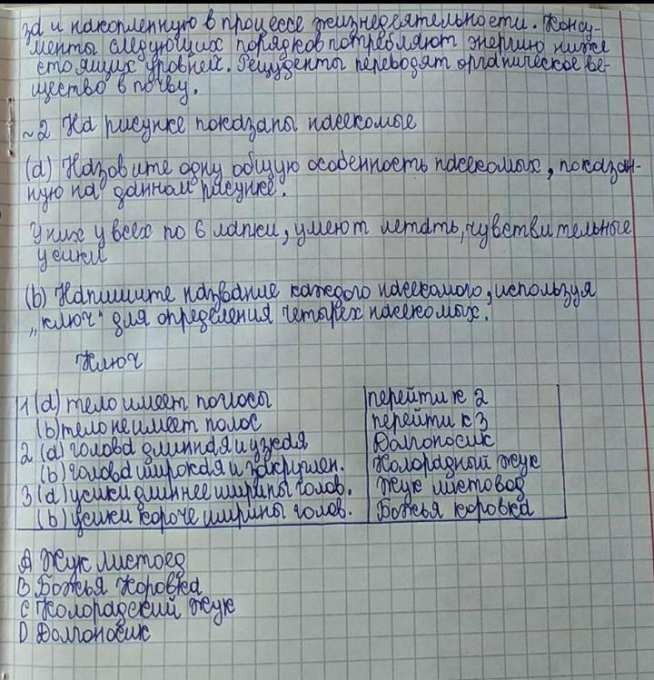 за и накопленную в процессе жизнедеятельности. Консу-
менты следующих порядков потребляют энергию ниже
стоящих уровней. Редуценты переводят органическое ве-
щество в почву.
~2 На рисунке показаны насекомые
(a) Назовите одну общую особенность насекомых, показан-
ную на данном рисунке.
У них у всех по 6 лапки, умеют летать, чувствительные
усики
(b) Напишите название каждого насекомого, используя
„ключ" для определения четырех насекомых.
Ключ
1 (a) тело имеет полосы перейти к 2
(b) тело не имеет полос перейти к 3
2 (a) голова длинная и узкая Долгоносик
(b) голова широкая и закруглен. Колорадный жук
3 (a) усики длиннее ширины голов. Жук листовод
(b) усики короче ширины голов. Божья коровка
A Жук листоед
B Божья Коровка
C Колорадский Жук
D Долгоносик